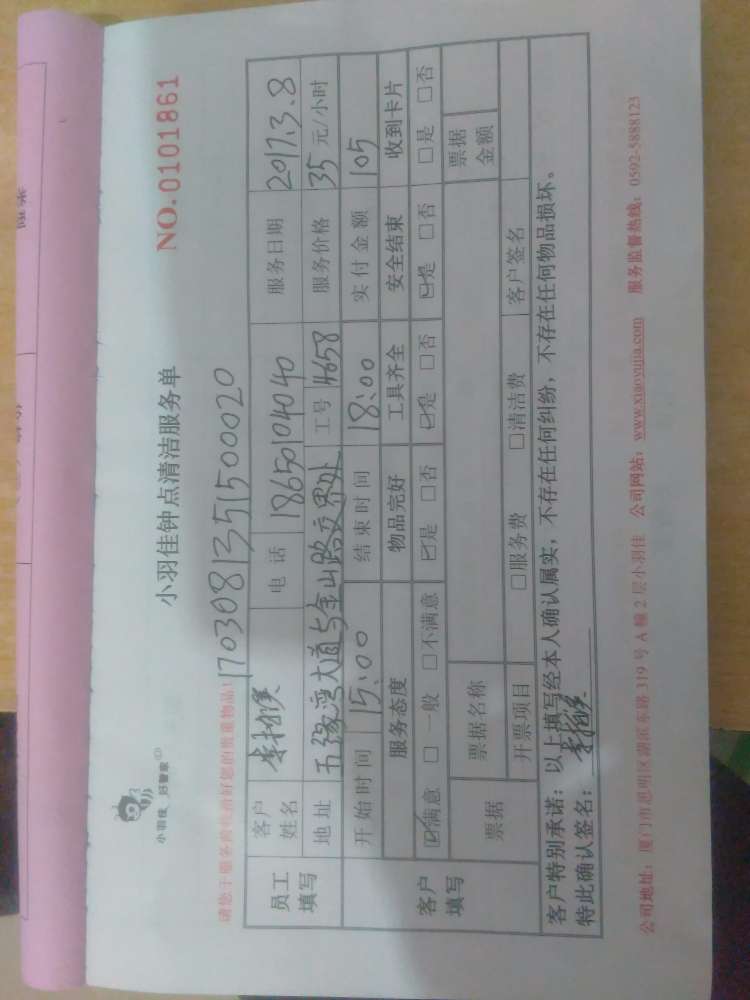 小羽佳 好管家
小羽佳钟点清洁服务单
NO.0101861
请您于服务前收拾好您的贵重物品!
1703081351500020
员工填写
客户姓名
电话 18650104040
服务日期 2017.3.8
地址 五缘湾大道与金山路交界处
工号 4658
服务价格 35 元/小时
开始时间 15:00
结束时间 18:00
实付金额 105
客户填写
服务态度 物品完好 工具齐全 安全结束 收到卡片
☑满意 □一般 □不满意 ☑是 □否 ☑是 □否 ☑是 □否 □是 □否
票据 票据名称 票据金额
开票项目 □服务费 □清洁费 客户签名
客户特别承诺:以上填写经本人确认属实,不存在任何纠纷,不存在任何物品损坏。
特此确认签名:
公司地址:厦门市思明区湖滨东路 319 号 A 幢 2 层小羽佳 公司网站:www.xiaoyujia.com 服务监督热线:0592-5888123